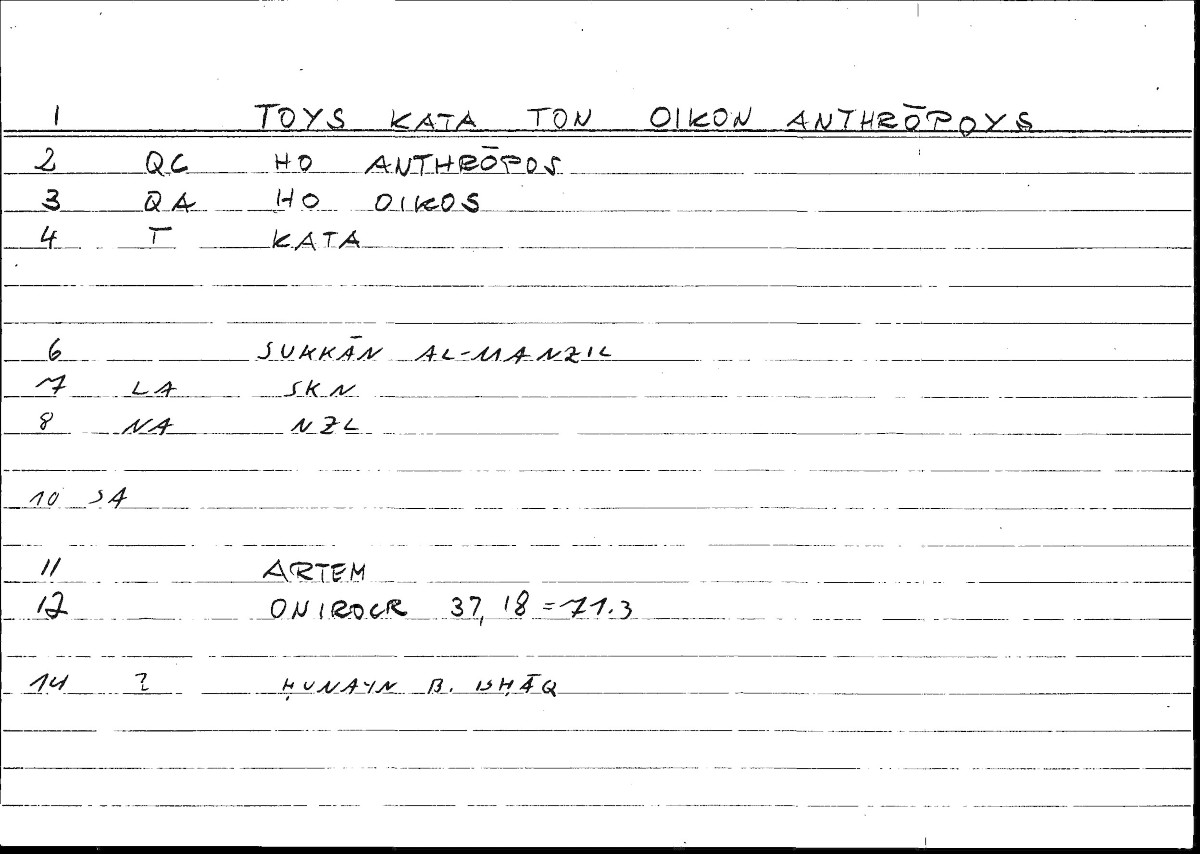 1 TOYS KATA TON OIKON ANTHRŌPOYS
2 QC HO ANTHRŌPOS
3 QA HO OIKOS
4 T KATA
6 SUKKĀN AL-MANZIL
7 LA SKN
8 NA NZL
10 SA
11 ARTEM
12 ONIROCR 37,18 = 71.3
14 ? ḤUNAYN B. ISḤĀQ